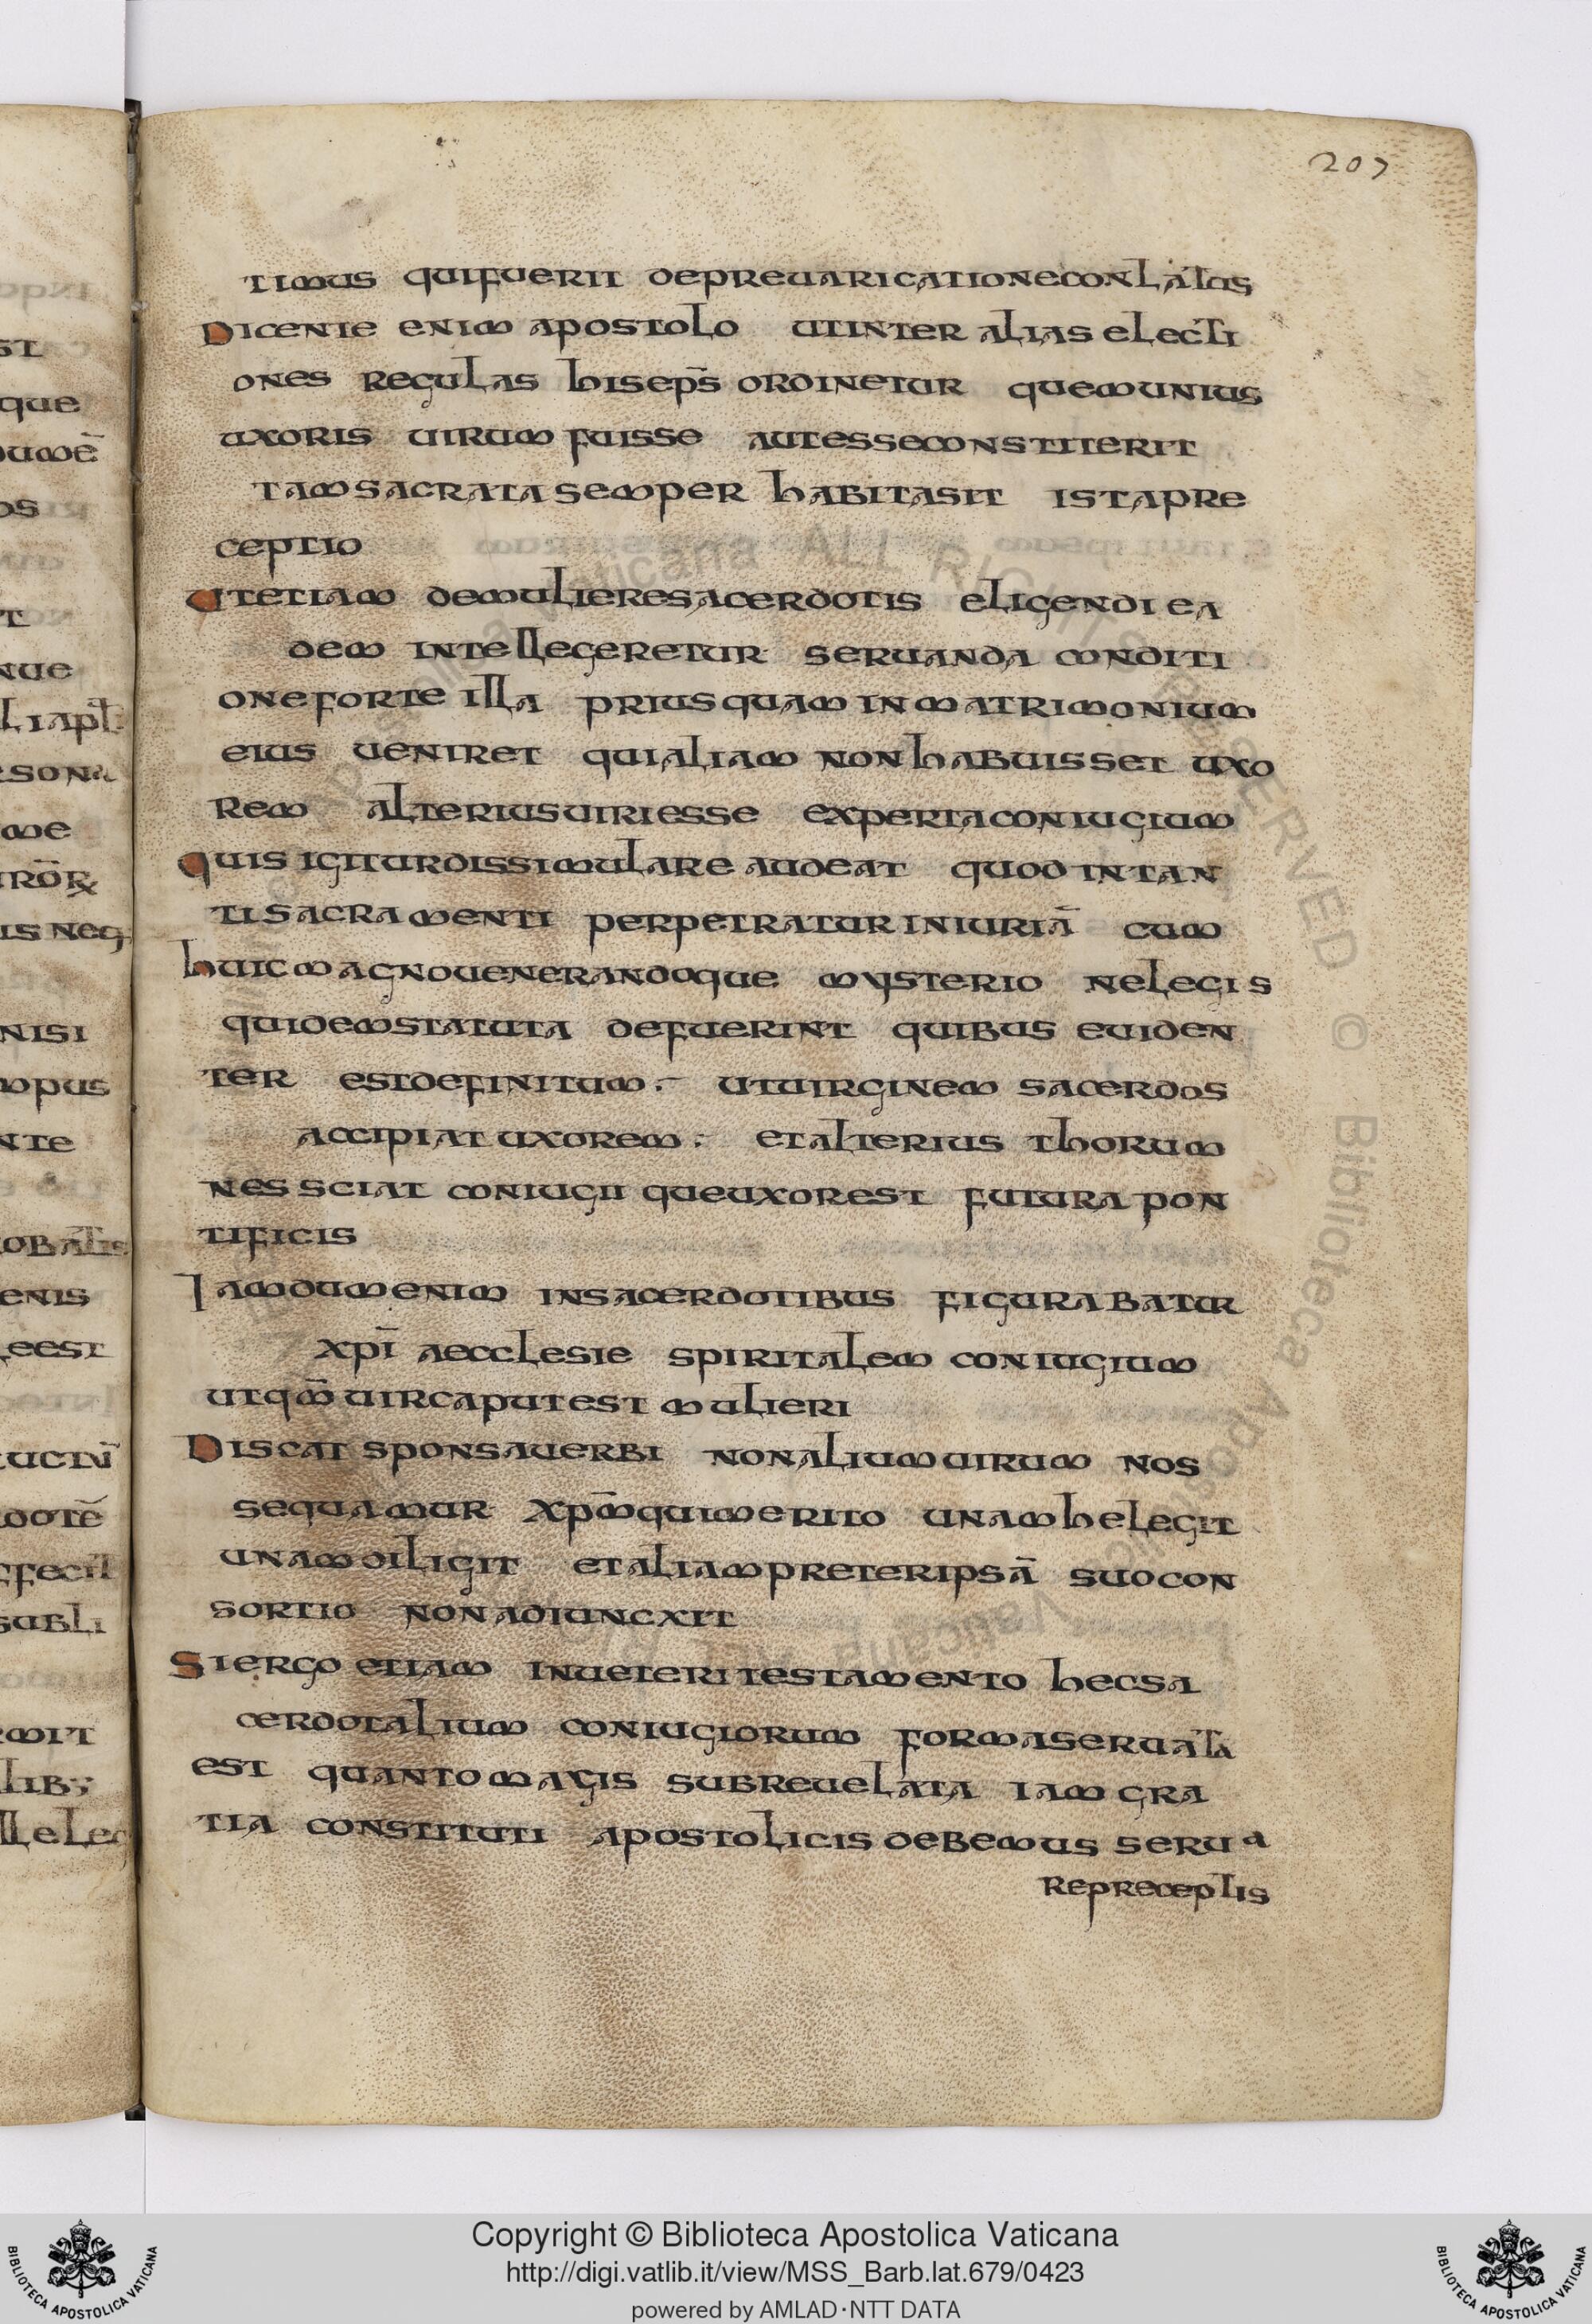 207
timus qui fuerit de prevaricatione conlatus
Dicente enim apostolo ut inter alias electi
ones regulas his ep̄s ordinetur quem unius
uxoris uirum fuisse aut esse constiterit
tam sacrata semper habita sit ista pre
ceptio
Ut etiam de muliere sacerdotis eligendi ea
dem intellegeretur seruanda conditi
one forte illa prius quam in matrimonium
eius ueniret qui aliam non habuisset uxo
rem alterius uiri esse experta coniugium
Quis igitur dissimulare audeat quod in tan
ti sacramenti perpetratur iniuriā cum
huic magno uenerandoque mysterio ne legis
quidem statuta defuerint quibus euiden
ter est definitum. ut uirginem sacerdos
accipiat uxorem. et alterius thorum
nessciat coniugii que uxor est futura pon
tificis
Iam dum enim in sacerdotibus figurabatur
xpī aecclesie spiritalem coniugium
ut qm̄ uir caput est mulieri
Discat sponsa uerbi non alium uirum nos
sequamur xpm̄ qui merito unam helegit
unam diligit et aliam preter ipsā suo con
sortio non adiuncxit
Si ergo etiam in ueteri testamento hec sa
cerdotalium coniugiorum forma seruata
est quanto magis sub reuelata iam gra
tia constituti apostolicis debemus serua
re preceptis
st
que
dumē
os
t
nue
li apl̄
sona
me
is neg
nisi
mpus
nte
obatis
enis
eest
dotē
subli
mit
lib;
lleleg
Copyright © Biblioteca Apostolica Vaticana
http://digi.vatlib.it/view/MSS_Barb.lat.679/0423
powered by AMLAD·NTT DATA
BIBLIOTECA APOSTOLICA VATICANA
BIBLIOTECA APOSTOLICA VATICANA